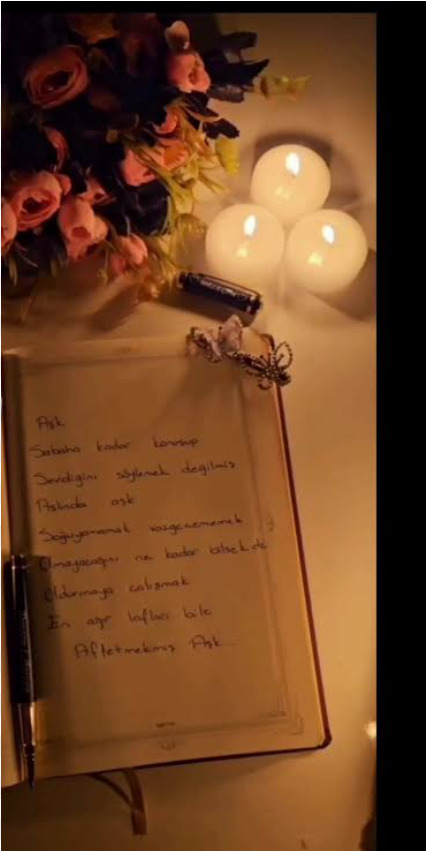 Aşk
Sabaha kadar konuşup
Sevdiğini söylemek değilmiş
Aslında aşk
Soğuyamamak vazgeçememek
Olmayacağını ne kadar bilsek de
Oldurmaya çalışmak
En ağır lafları bile
Affetmekmiş Aşk...